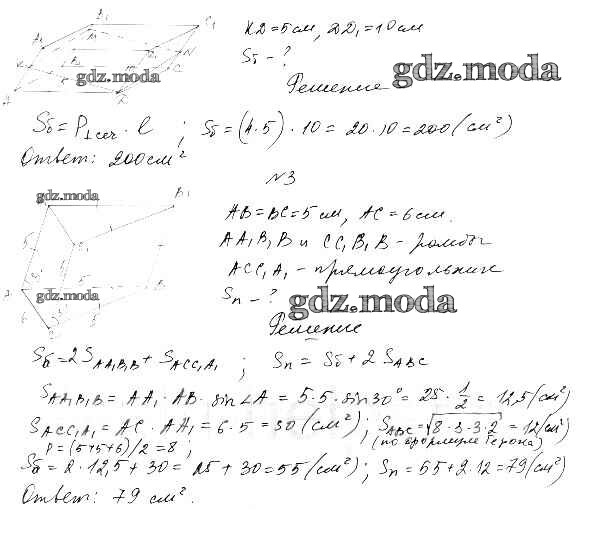 KD = 5 см, DD₁ = 10 см
Sб - ?
Решение
gdz.moda
gdz.moda
Sб = P⊥сеч · l ; Sб = (4·5)·10 = 20·10 = 200 (см²)
Ответ: 200 см²
№3
gdz.moda
B₁
AB = BC = 5 см, AC = 6 см.
AA₁B₁B и CC₁B₁B - ромбы
ACC₁A₁ - прямоугольник
gdz.moda
Sп - ?
gdz.moda
Решение
Sб = 2S AA₁B₁B + S ACC₁A₁ ; Sп = Sб + 2 S ABC
S AA₁B₁B = AA₁ · AB · sin∠A = 5·5·sin30° = 25 · 1/2 = 12,5 (см²)
S ACC₁A₁ = AC · AA₁ = 6·5 = 30 (см²) ; S ABC = √8·3·3·2 = 12 (см²)
P = (5+5+6)/2 = 8 ; (по формуле Герона)
Sб = 2 · 12,5 + 30 = 25 + 30 = 55 (см²) ; Sп = 55 + 2·12 = 79 (см²)
Ответ: 79 см².